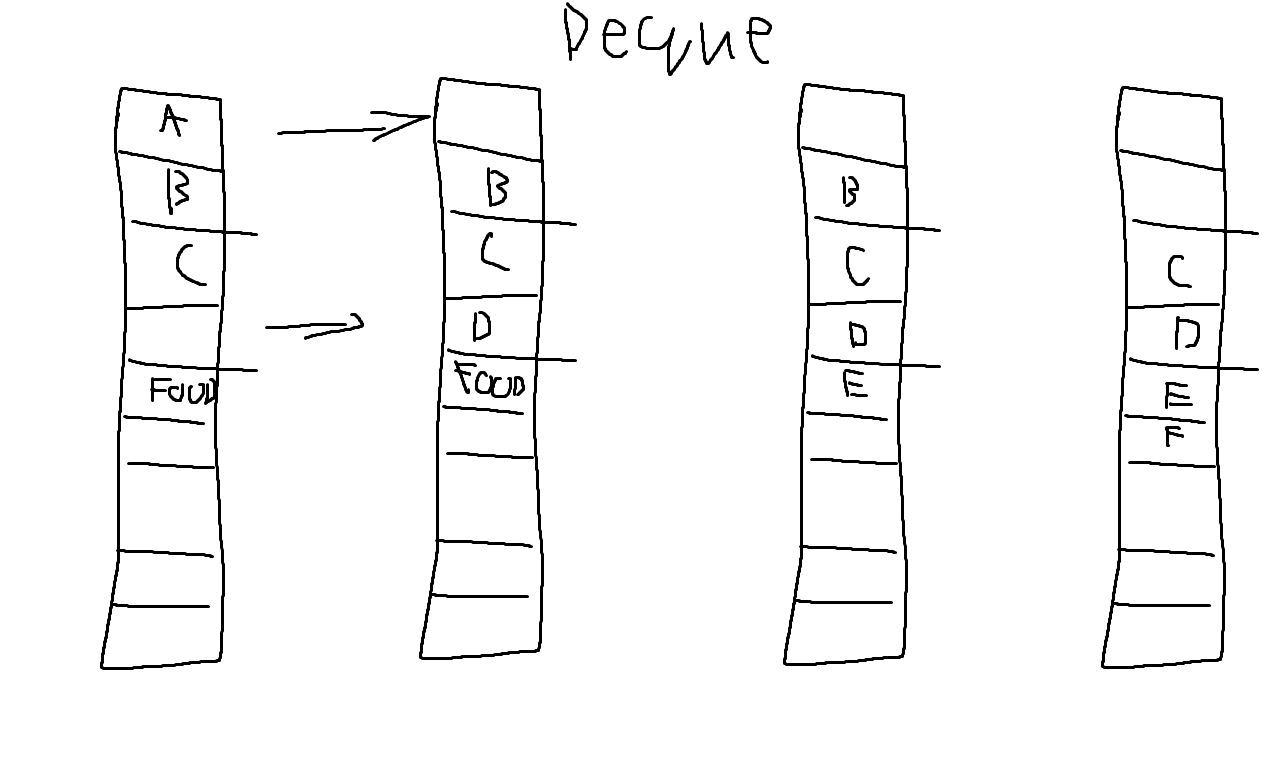 Deque
A
B
C
FOOD
B
C
D
FOOD
B
C
D
E
C
D
E
F